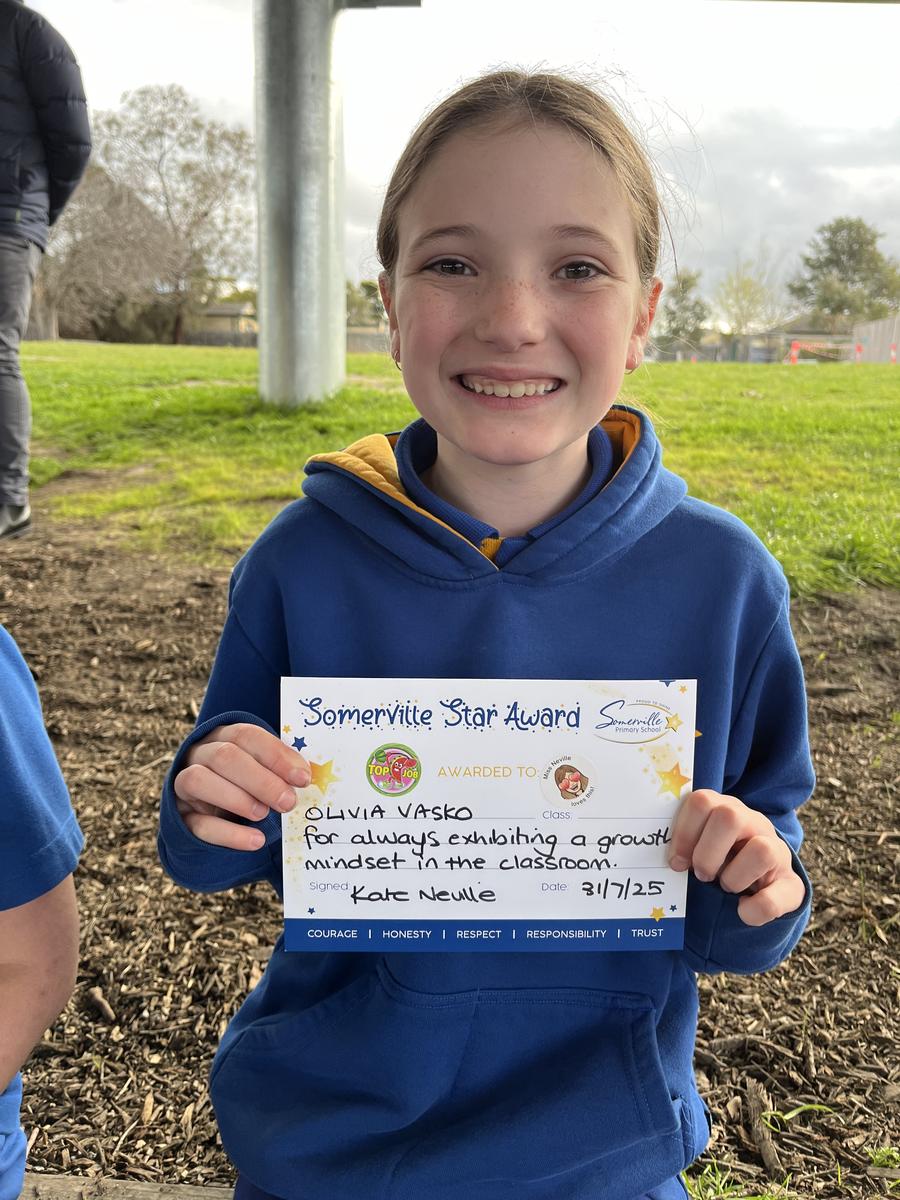 Somerville Star Award
PROUD TO SHINE
Somerville
Primary School
TOP JOB
AWARDED TO:
Miss Neville
loves this!
OLIVIA VASKO
Class:
for always exhibiting a growth
mindset in the classroom.
Signed: Kate Neville Date: 31/7/25
COURAGE | HONESTY | RESPECT | RESPONSIBILITY | TRUST